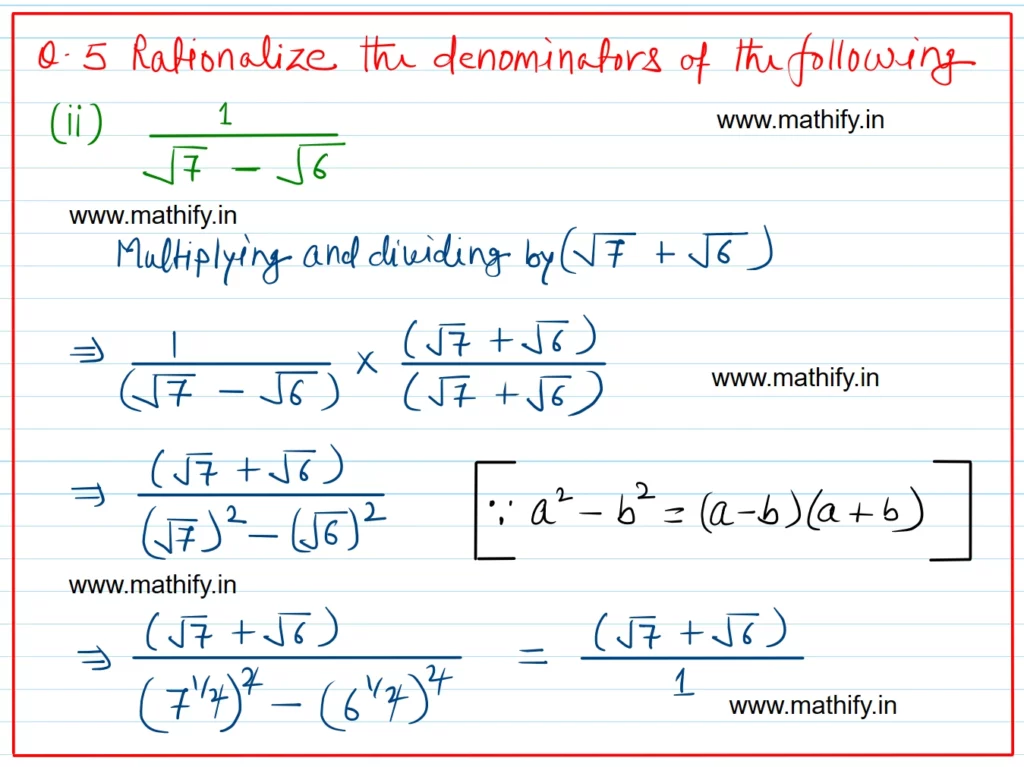 Q. 5 Rationalize the denominators of the following
(ii) 1 / (√7 − √6)
www.mathify.in
www.mathify.in
Multiplying and dividing by (√7 + √6)
⇒ 1 / (√7 − √6) × (√7 + √6) / (√7 + √6)
www.mathify.in
⇒ (√7 + √6) / (√7)² − (√6)² [∵ a² − b² = (a−b)(a+b)]
www.mathify.in
⇒ (√7 + √6) / (7^1/2)^2 − (6^1/2)^2 = (√7 + √6) / 1
www.mathify.in